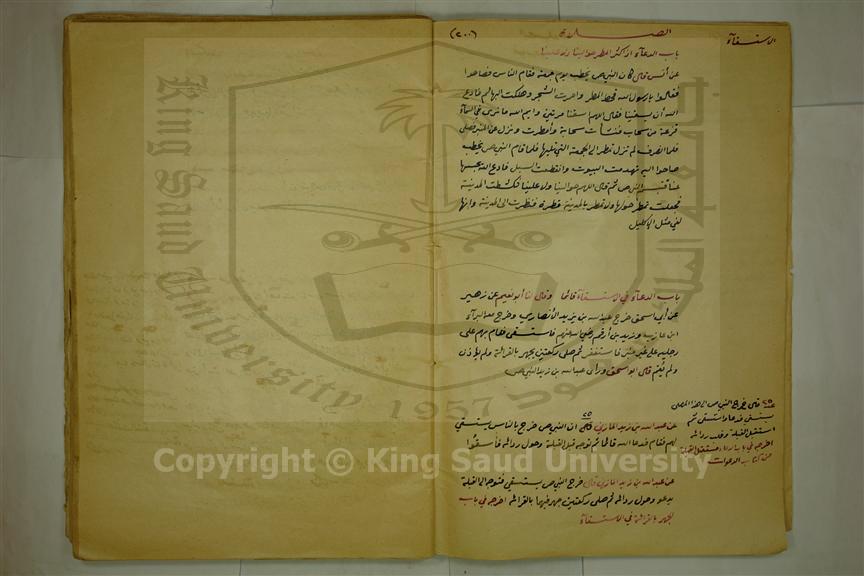 الاستسقاء
الصلاة
(٢٠٠)
باب الدعاء اذا كثر المطر حوالينا ولا علينا
عن أنس قال كان النبي ص يخطب يوم جمعة فقام الناس فصاحوا
فقالوا يا رسول الله قحط المطر واحمرت الشجر وهلكت البهائم فادع
الله أن يسقينا فقال اللهم اسقنا مرتين وايم الله ما نرى في السماء
قزعة من سحاب فنشأت سحابة وأمطرت ونزل عن المنبر فصلى
فلما انصرف لم تزل تمطر الى الجمعة التي تليها فلما قام النبي ص يخطب
صاحوا اليه تهدمت البيوت وانقطعت السبل فادع الله يحبسها
عنا فتبسم النبي ص ثم قال اللهم حوالينا ولا علينا فكشطت المدينة
فجعلت تمطر حولها ولا تمطر بالمدينة قطرة فنظرت الى المدينة وانها
لفي مثل الاكليل
باب الدعاء في الاستسقاء قائما وقال لنا أبو نعيم عن زهير
عن أبي اسحق خرج عبد الله بن يزيد الأنصاري وخرج معه البراء
ابن عازب وزيد بن أرقم رضي الله عنهم فاستسقى فقام بهم على
رجليه على غير منبر فاستغفر ثم صلى ركعتين يجهر بالقراءة ولم يؤذن
ولم يقم قال ابو اسحق ورأى عبد الله بن يزيد النبي ص
عن عبد الله بن زيد المازني قال ان النبي ص خرج بالناس يستسقي
لهم فقام فدعا الله قائما ثم توجه قبل القبلة وحول رداءه فأسقوا
عن عبد الله بن زيد المازني قال خرج النبي ص يستسقي فتوجه الى القبلة
يدعو وحول رداءه ثم صلى ركعتين جهر فيهما بالقراءة اخرجه في باب
الجهر بالقراءة في الاستسقاء
قال خرج النبي ص الى هذا المصلى
يستسقي فدعا واستسقى ثم
استقبل القبلة وقلب رداءه
اخرجه في باب الدعاء مستقبل القبلة
من كتاب الدعوات
King Saud University
1957
Copyright © King Saud University